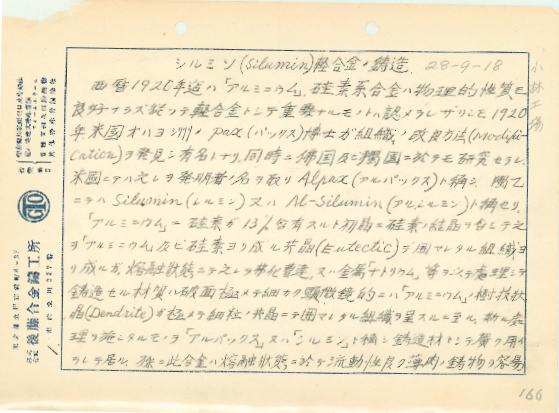 シルミン(Silumin)軽合金ノ鋳造. 28-9-18
小林工場
西暦1920年迄ハ「アルミニウム」硅素系合金ハ物理的性質モ
良好ナラズ従ツテ軽合金トシテ重要ナルモノト認メラレザリシモ1920
年米國オハヨ洲ノpax(パックス)博士ガ組織ノ改良方法(Modifi-
cation)ヲ発見シ有名トナリ,同時ニ佛國及ビ獨國ニ於テモ研究セラレ,
米國ニテハ之レヲ発明者ノ名ヲ取リAlpax(アルパックス)ト稱シ, 獨乙
ニテハSilumin(シルミン)又ハAl-Silumin(アルシルミン)ト稱セリ,
「アルミニウム」ー硅素ガ13%含有スルト初晶ニ硅素ノ結晶ヲ
ヲ「アルミニウム」及ビ硅素ヨリ成ル共晶(Eutectic)デ囲マレタル組織ヨ
リ成ルガ, 熔融状態ニテ之レヲ弗化曹達, 又ハ金属「ナトリウム」等ヲ以テ處理シテ
鋳造セル材質ハ破面極メテ細カク顕微鏡的ニハ「アルミニウム」ノ樹枝状
晶(Dendrite)ガ極メテ細粒ノ共晶ニテ囲マレタル組織ヲ呈スルニ至ル, 斯ル處
理ヲ施シタルモノヲ「アルパックス」又ハ「シルミン」ト稱シ鋳造材トシテ廣ク用イ
ラレテ居ル, 殊ニ此合金ハ熔融状態ニ於テ流動性良ク薄肉ノ鋳物ヲ容易
GTO
後藤合金鋳工所
166